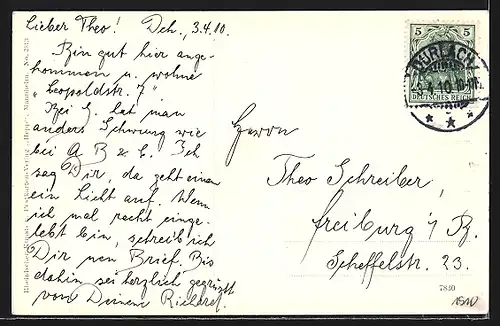 Lieber Theo! Dch., 3.4.10.
Bin gut hier ange-
kommen u. wohne
"Leopoldstr. 7"
Bei G. hat man
anders Schwung wie
bei A B & C. Ich
sag Dir, da geht einem
ein Licht auf. Wenn
ich mal recht einge-
lebt bin, schreib ich
Dir nen Brief. Bis
dahin sei herzlich gegrüßt
von Deinem Richard.
Herrn
Theo Schreiber,
Freiburg i/ B.
Scheffelstr. 23.
5 5
DURLACH
10
DEUTSCHES REICH
7840
1910